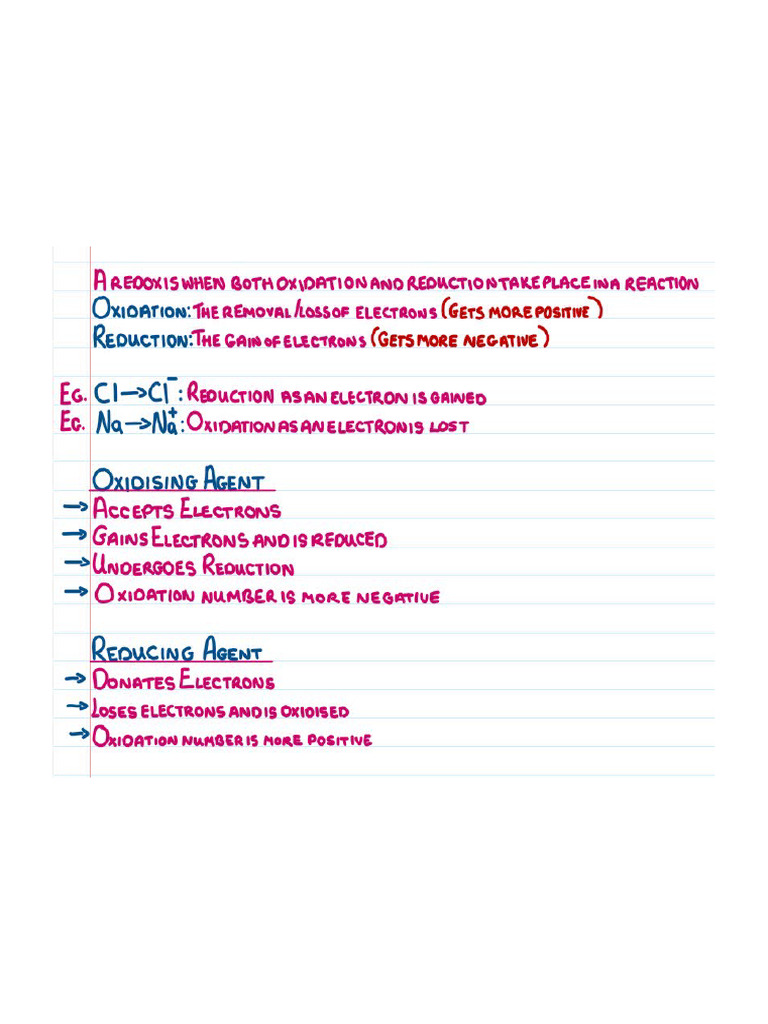 A REDOX IS WHEN BOTH OXIDATION AND REDUCTION TAKE PLACE IN A REACTION
OXIDATION: THE REMOVAL/LOSS OF ELECTRONS (GETS MORE POSITIVE)
REDUCTION: THE GAIN OF ELECTRONS (GETS MORE NEGATIVE)
EG. Cl → Cl⁻: REDUCTION AS AN ELECTRON IS GAINED
EG. Na → Na⁺: OXIDATION AS AN ELECTRON IS LOST
OXIDISING AGENT
→ ACCEPTS ELECTRONS
→ GAINS ELECTRONS AND IS REDUCED
→ UNDERGOES REDUCTION
→ OXIDATION NUMBER IS MORE NEGATIVE
REDUCING AGENT
→ DONATES ELECTRONS
→ LOSES ELECTRONS AND IS OXIDISED
→ OXIDATION NUMBER IS MORE POSITIVE